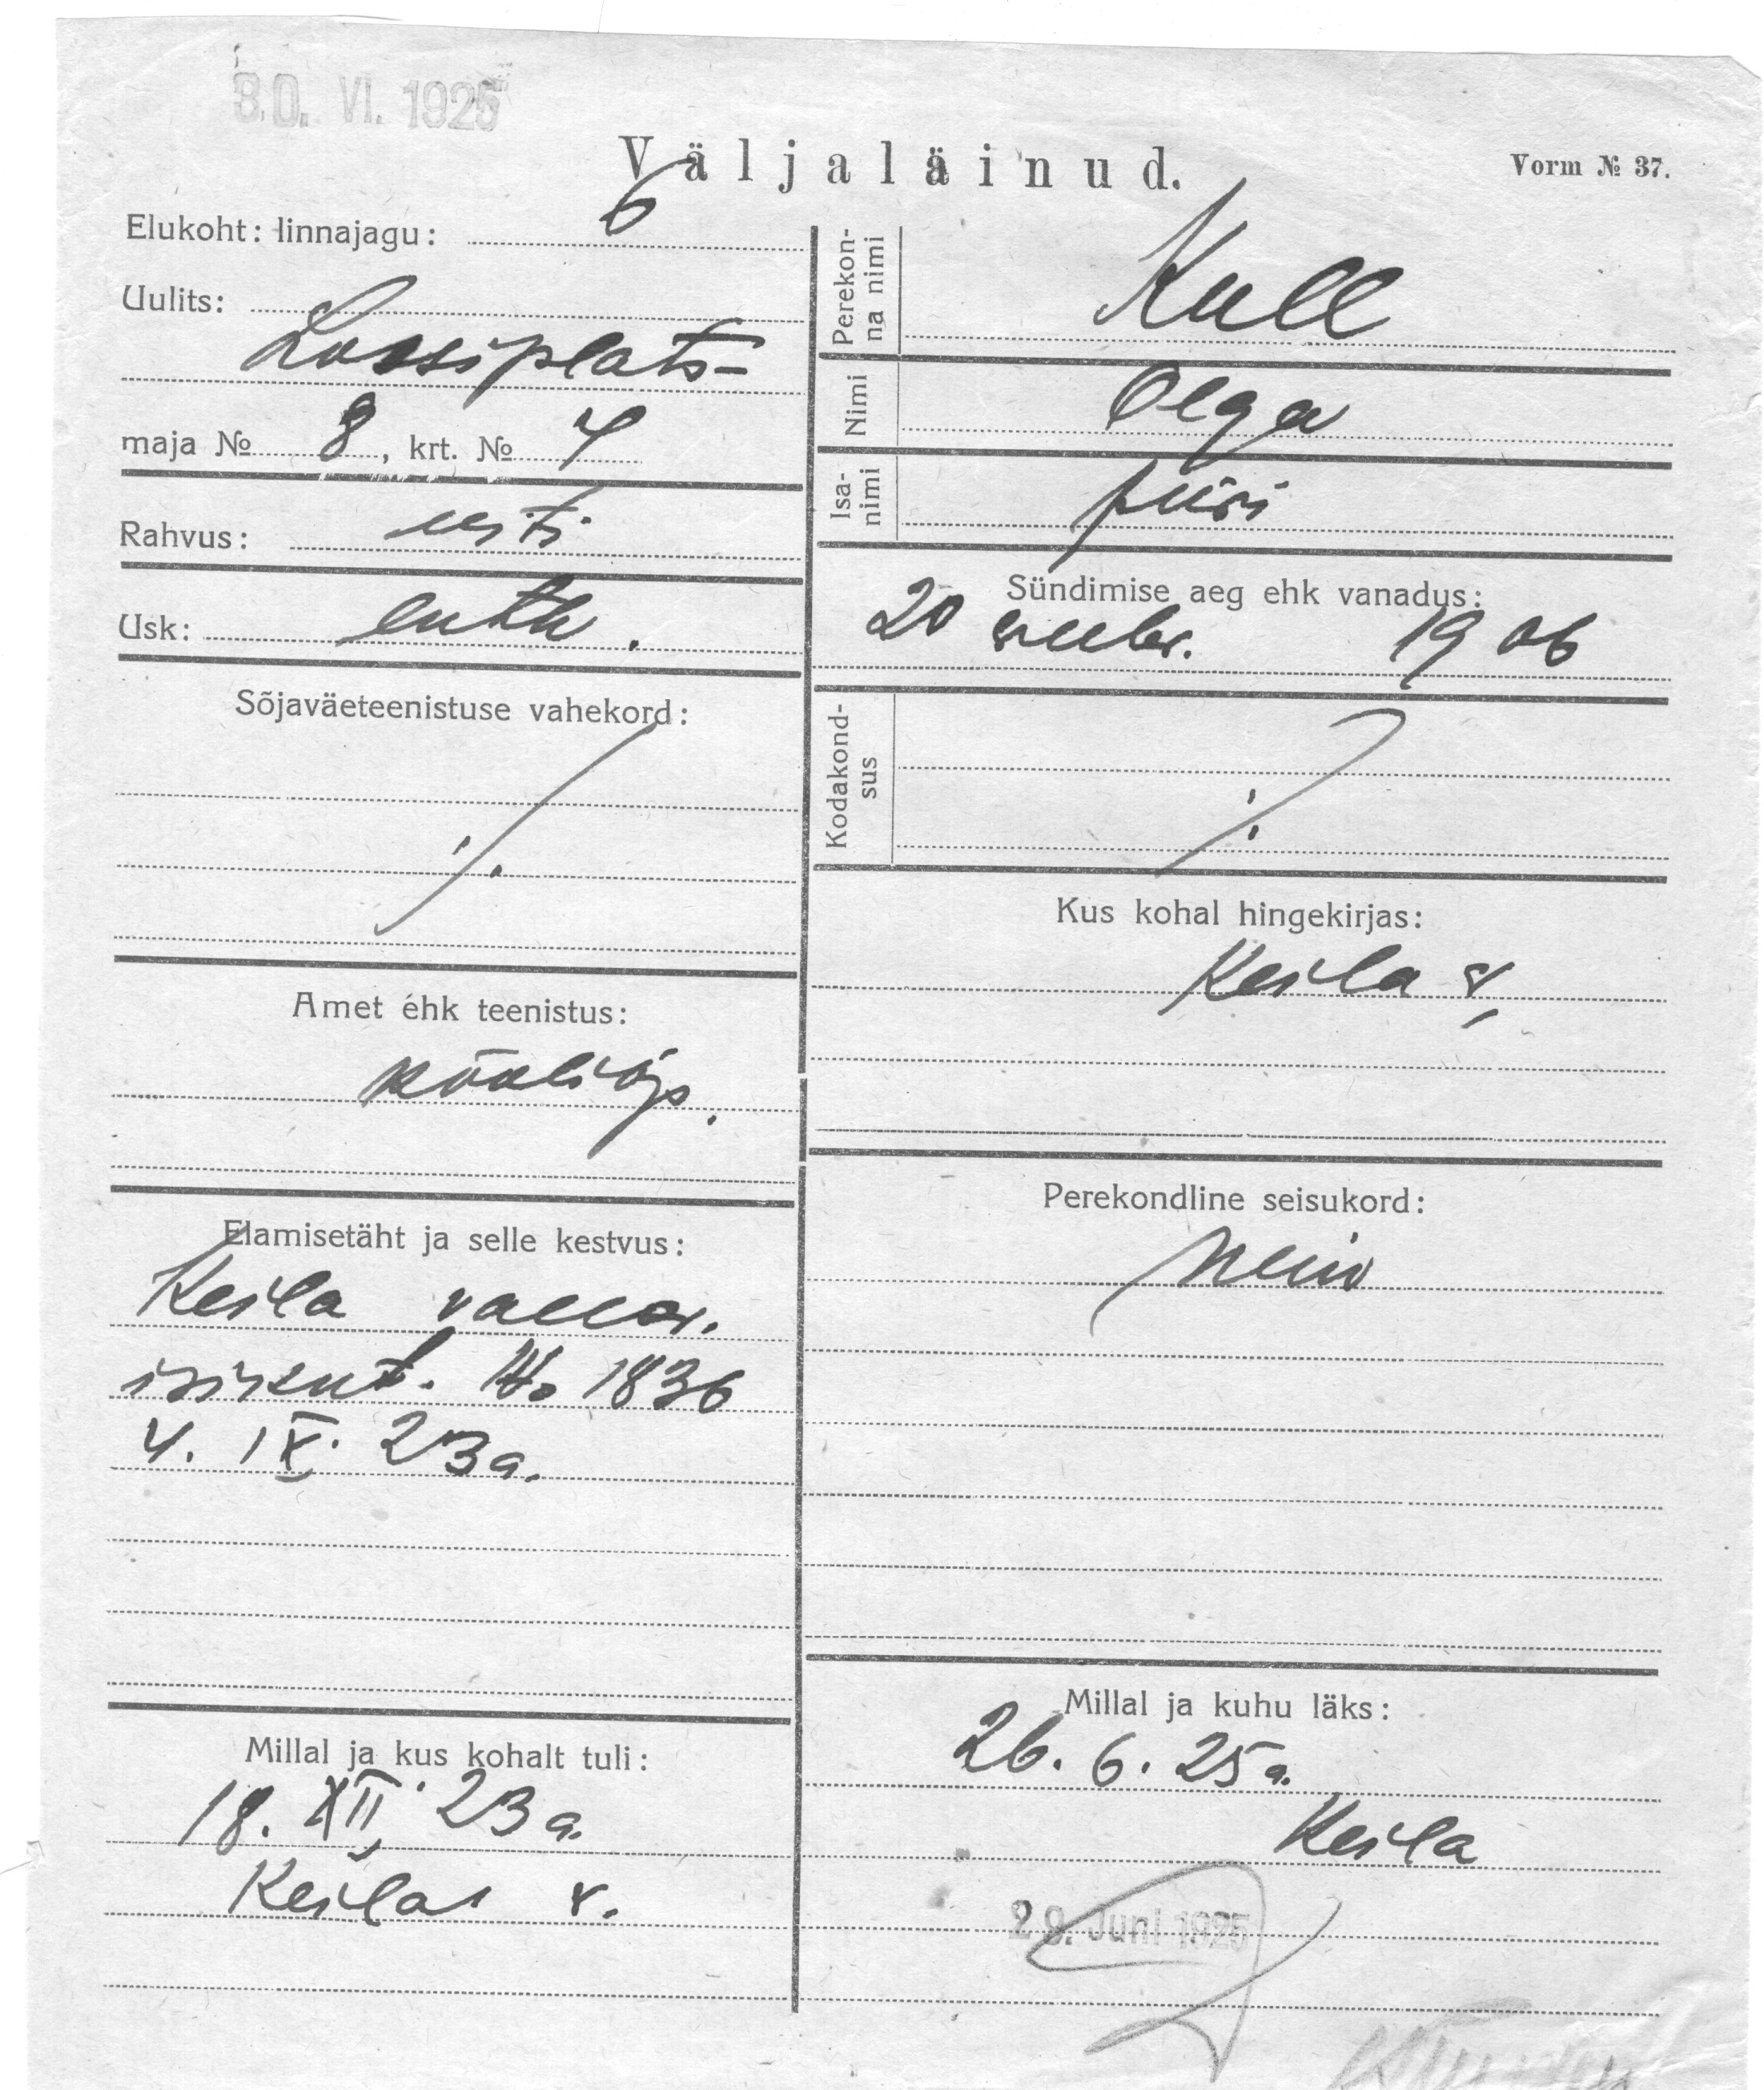 30. VI. 1925
Väljaläinud.
Vorm № 37.
Elukoht: linnajagu: 6
Uulits:
Lossiplats-
maja № 8, krt. № 4
Rahvus: eesti
Usk: luth.
Sõjaväeteenistuse vahekord:
·/.
Amet ehk teenistus:
kooliõp.
Elamisetäht ja selle kestvus:
Keila vallav.
isikut. № 1836
4. IX. 23 a.
Millal ja kus kohalt tuli:
18. XII. 23 a.
Keilas v.
Perekon-
na nimi
Kull
Nimi
Olga
Isa-
nimi
Jüri
Sündimise aeg ehk vanadus:
20 1906
Kodakond-
sus
·/.
Kus kohal hingekirjas:
Keila v.
Perekondline seisukord:
neiu
Millal ja kuhu läks:
26. 6. 25 a.
Keila
29. Juni 1925